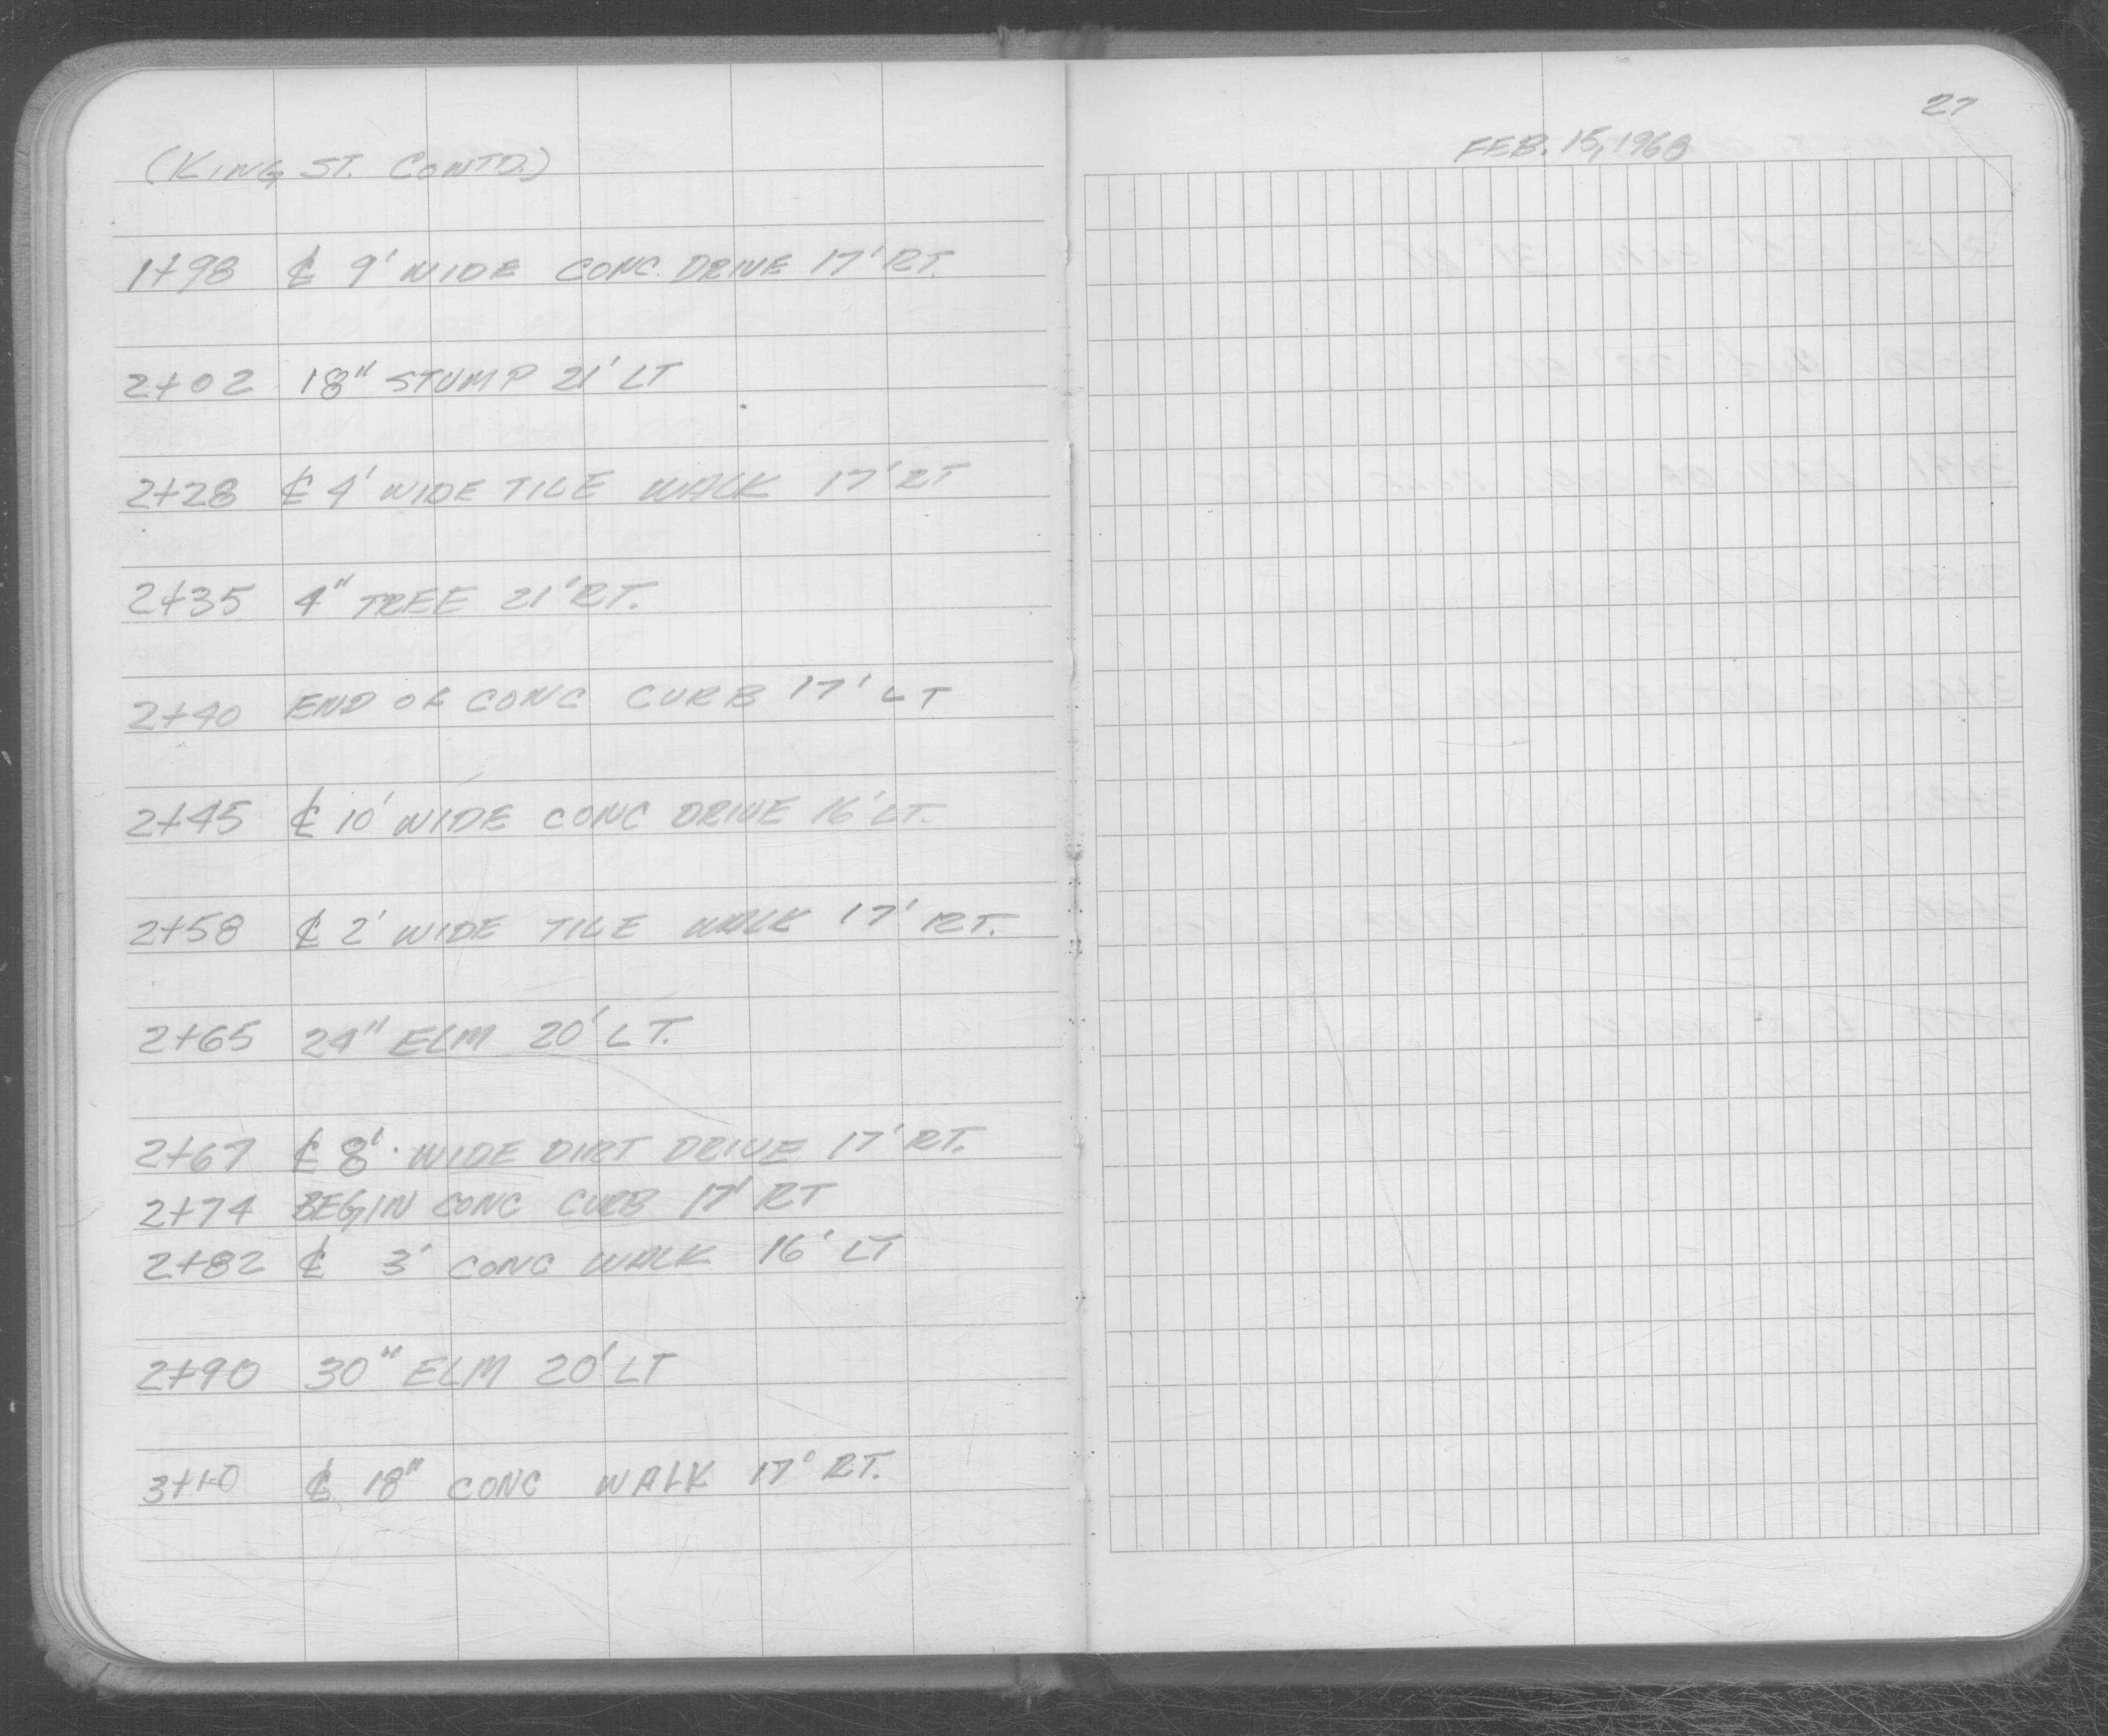 (KING ST. CONTD.)
1+98 ℄ 9' WIDE CONC. DRIVE 17' RT.
2+02 18" STUMP 21' LT
2+28 ℄ 4' WIDE TILE WALK 17' RT
2+35 4" TREE 21' RT.
2+40 END OF CONC CURB 17' LT
2+45 ℄ 10' WIDE CONC DRIVE 16' LT.
2+58 ℄ 2' WIDE TILE WALK 17' RT.
2+65 24" ELM 20' LT.
2+67 ℄ 8' WIDE DIRT DRIVE 17' RT.
2+74 BEGIN CONC CURB 17' RT
2+82 ℄ 3' CONC WALK 16' LT
2+90 30" ELM 20' LT
3+10 ℄ 18" CONC WALK 17' RT.
27
FEB. 15, 1968